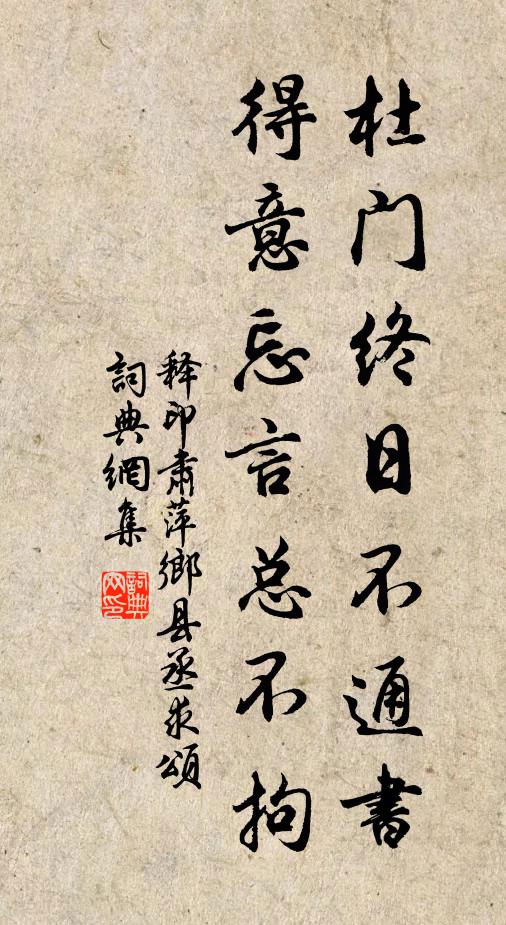 杜门终日不通書
得意忘言总不拘
释印肃萍鄉县丞求頌
詞典網集
詞典网印